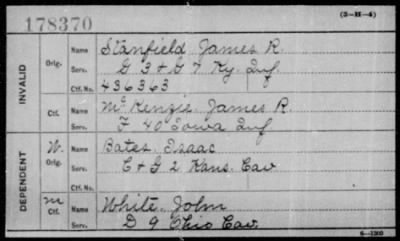 178370
(3-H-4)
INVALID
Orig.
Name Stanfield James R.
Serv. G 3 & G 7 Ky. Inf.
Ctf. No. 436363
Ctf.
Name McKenzie, James R.
Serv. F 40 Iowa Inf
DEPENDENT
W.
Orig.
Name Bates, Isaac
Serv. C & G 2 Kans. Cav
Ctf. No.
M
Ctf.
Name White, John
Serv. D 9 Ohio Cav.